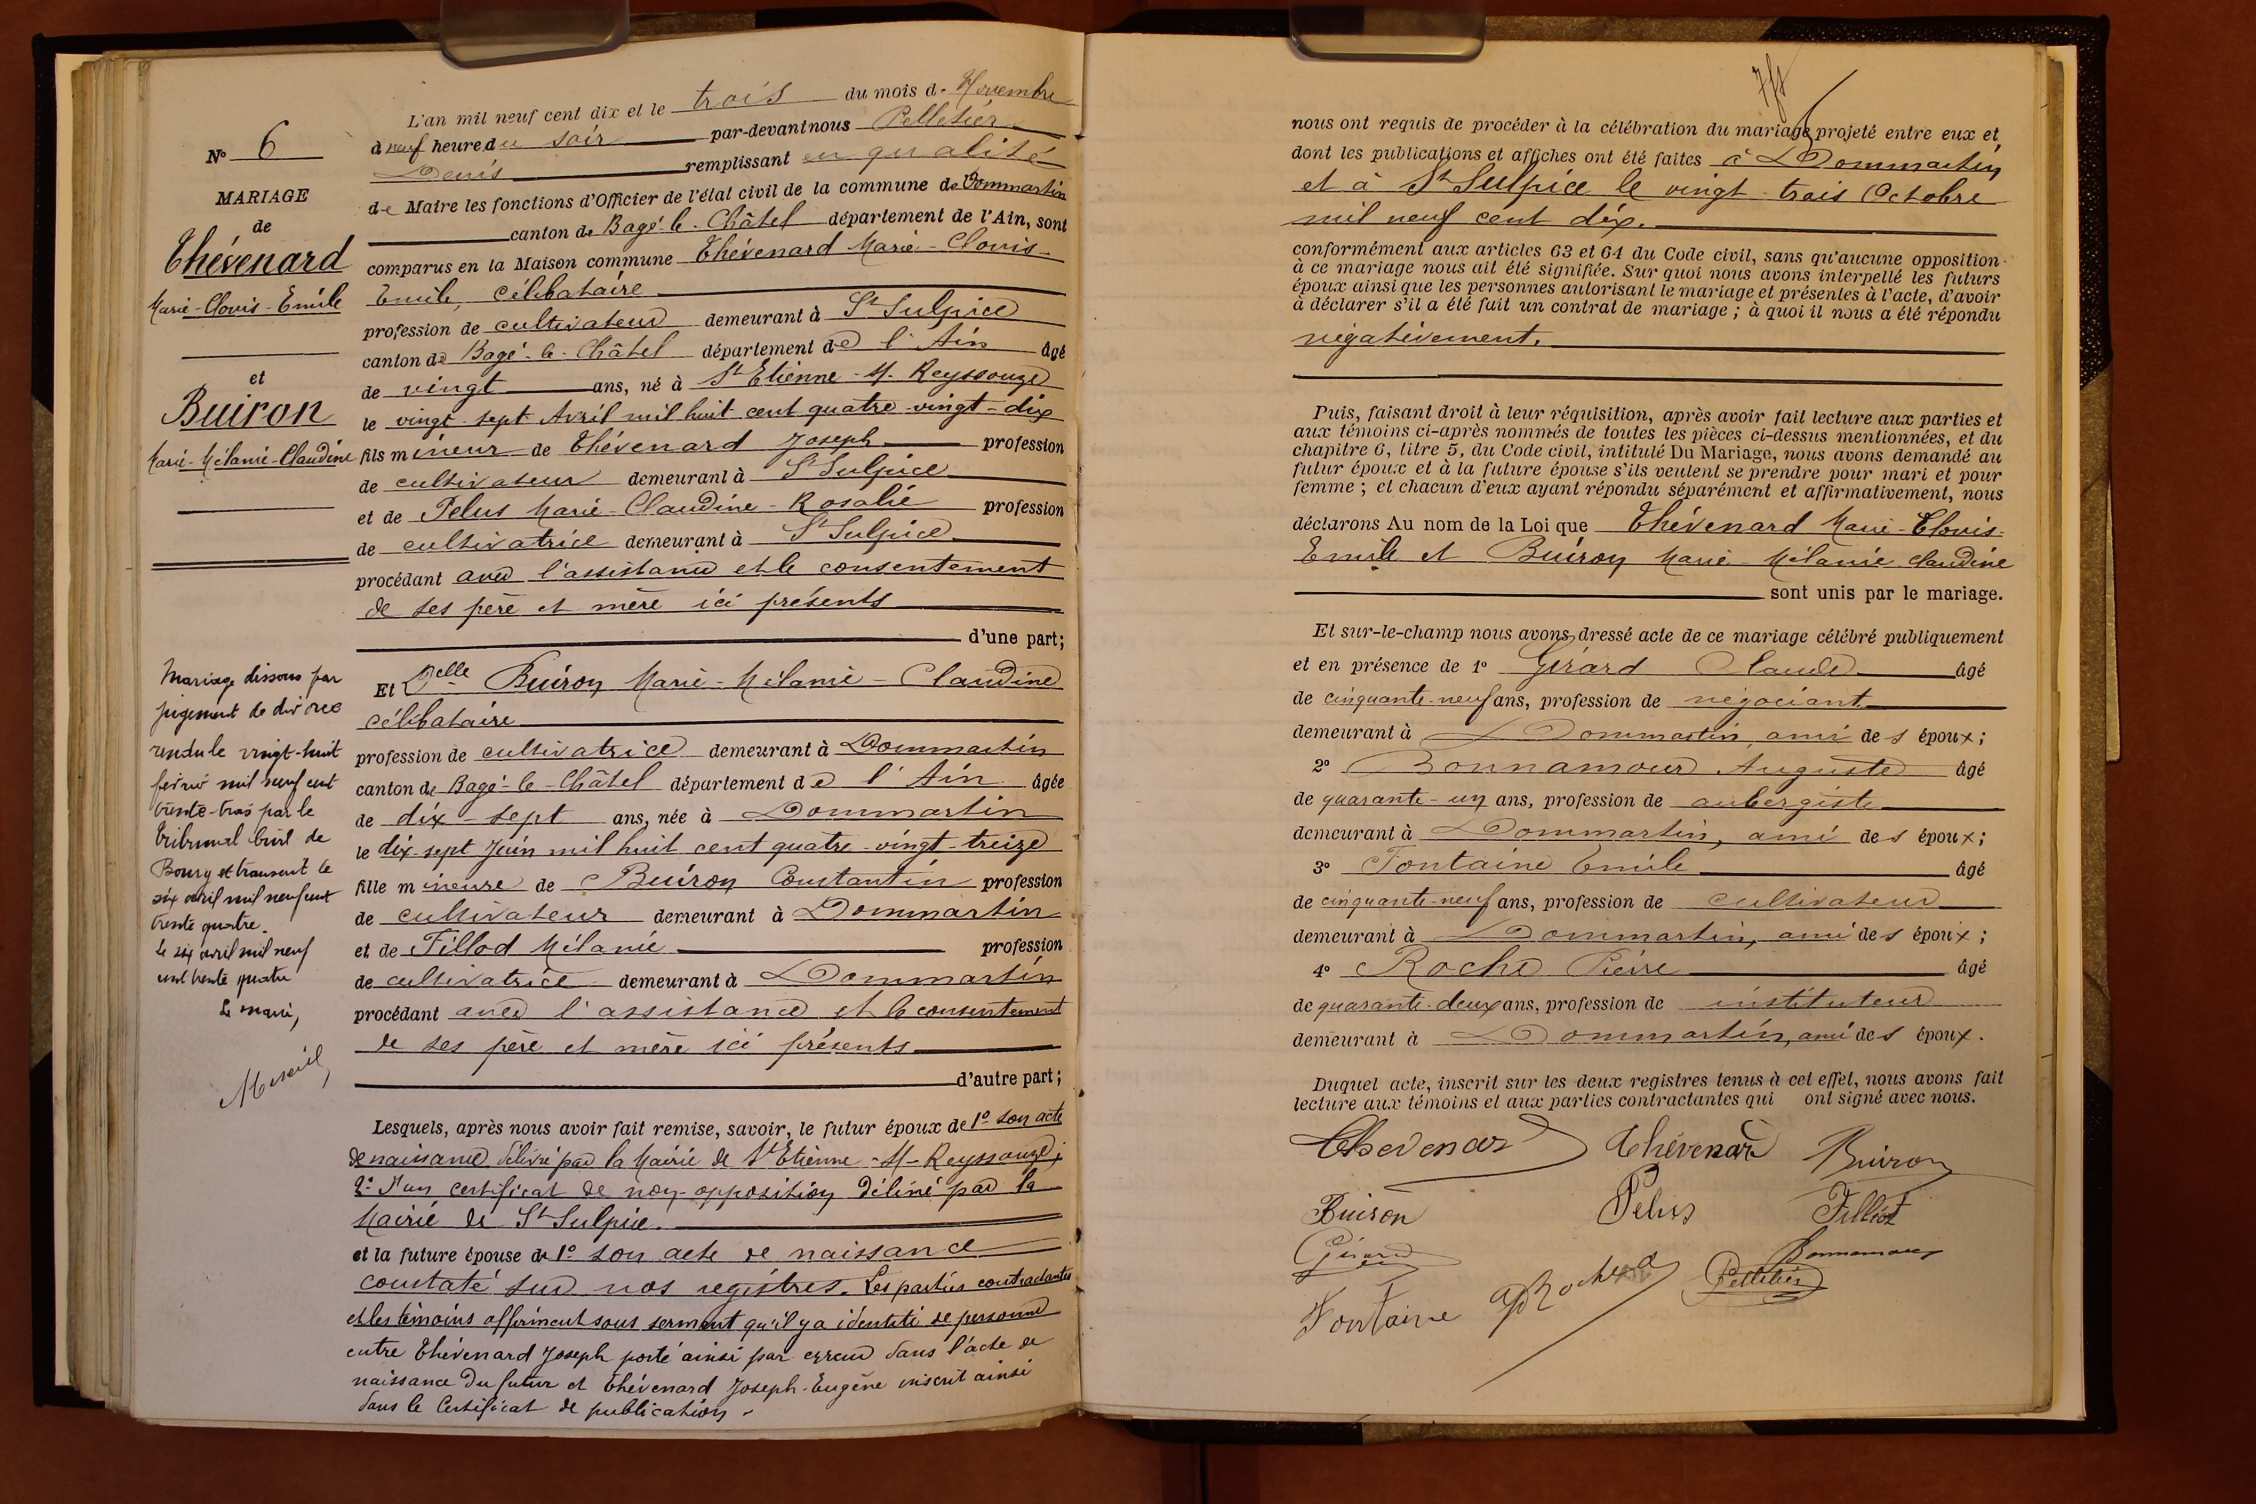 N° 6
MARIAGE
de
Thévenard
Marie-Clovis-Emile
et
Buiron
Marie-Mélanie-Claudine
Mariage dissous par
jugement de divorce
rendu le vingt-huit
février mil neuf cent
trente-trois par le
tribunal civil de
Bourg et transcrit le
six avril mil neuf cent
trente quatre.
Le six avril mil neuf
cent trente quatre
Le maire,
L'an mil neuf cent dix et le trois du mois d. Novembre
à neuf heure du soir par-devant nous Pelletier
Denis remplissant en qualité
de Maire les fonctions d'Officier de l'état civil de la commune de Dommartin
canton de Bagé-le-Châtel département de l'Ain, sont
comparus en la Maison commune Thévenard Marie-Clovis-
Emile, célibataire
profession de cultivateur demeurant à St Sulpice
canton de Bagé-le-Châtel département de l'Ain âgé
de vingt ans, né à St Etienne-s/-Reyssouze
le vingt-sept Avril mil huit cent quatre-vingt-dix
fils mineur de Thévenard Joseph profession
de cultivateur demeurant à St Sulpice
et de Pelus Marie-Claudine-Rosalie profession
de cultivatrice demeurant à St Sulpice
procédant avec l'assistance et le consentement
de ses père et mère ici présents
d'une part;
Et Delle Buiron Marie-Mélanie-Claudine
célibataire
profession de cultivatrice demeurant à Dommartin
canton de Bagé-le-Châtel département de l'Ain âgée
de dix-sept ans, née à Dommartin
le dix-sept Juin mil huit cent quatre-vingt-treize
fille mineure de Buiron Constantin profession
de cultivateur demeurant à Dommartin
et de Fillod Mélanie profession
de cultivatrice demeurant à Dommartin
procédant avec l'assistance et le consentement
de ses père et mère ici présents
d'autre part;
Lesquels, après nous avoir fait remise, savoir, le futur époux de 1° son acte
de naissance délivré par la Mairie de St Etienne-s/-Reyssouze;
2° d'un certificat de non-opposition délivré par la
Mairie de St Sulpice.
et la future épouse de 1° son acte de naissance
constaté sur nos registres. Les parties contractantes
et les témoins affirment sous serment qu'il y a identité de personne
entre Thévenard Joseph porté ainsi par erreur dans l'acte de
naissance du futur et Thévenard Joseph-Eugène inscrit ainsi
dans le Certificat de publication.
nous ont requis de procéder à la célébration du mariage projeté entre eux et
dont les publications et affiches ont été faites à Dommartin
et à St Sulpice le vingt-trois Octobre
mil neuf cent dix.
conformément aux articles 63 et 64 du Code civil, sans qu'aucune opposition
à ce mariage nous ait été signifiée. Sur quoi nous avons interpellé les futurs
époux ainsi que les personnes autorisant le mariage et présentes à l'acte, d'avoir
à déclarer s'il a été fait un contrat de mariage; à quoi il nous a été répondu
négativement.
Puis, faisant droit à leur réquisition, après avoir fait lecture aux parties et
aux témoins ci-après nommés de toutes les pièces ci-dessus mentionnées, et du
chapitre 6, titre 5, du Code civil, intitulé Du Mariage, nous avons demandé au
futur époux et à la future épouse s'ils veulent se prendre pour mari et pour
femme; et chacun d'eux ayant répondu séparément et affirmativement, nous
déclarons Au nom de la Loi que Thévenard Marie-Clovis-
Emile et Buiron Marie-Mélanie Claudine
sont unis par le mariage.
Et sur-le-champ nous avons dressé acte de ce mariage célébré publiquement
et en présence de 1° Gérard Claude âgé
de cinquante-neuf ans, profession de négociant
demeurant à Dommartin, ami des époux;
2° Bonnamour Auguste âgé
de quarante-un ans, profession de aubergiste
demeurant à Dommartin, ami des époux;
3° Fontaine Emile âgé
de cinquante-neuf ans, profession de cultivateur
demeurant à Dommartin, ami des époux;
4° Roche Pierre âgé
de quarante-deux ans, profession de instituteur
demeurant à Dommartin, ami des époux.
Duquel acte, inscrit sur les deux registres tenus à cet effet, nous avons fait
lecture aux témoins et aux parties contractantes qui ont signé avec nous.
Thevenard Thévenard Buiron
Buiron Pelus Filliod
Gérard Bonnamour
Fontaine Roche Pelletier